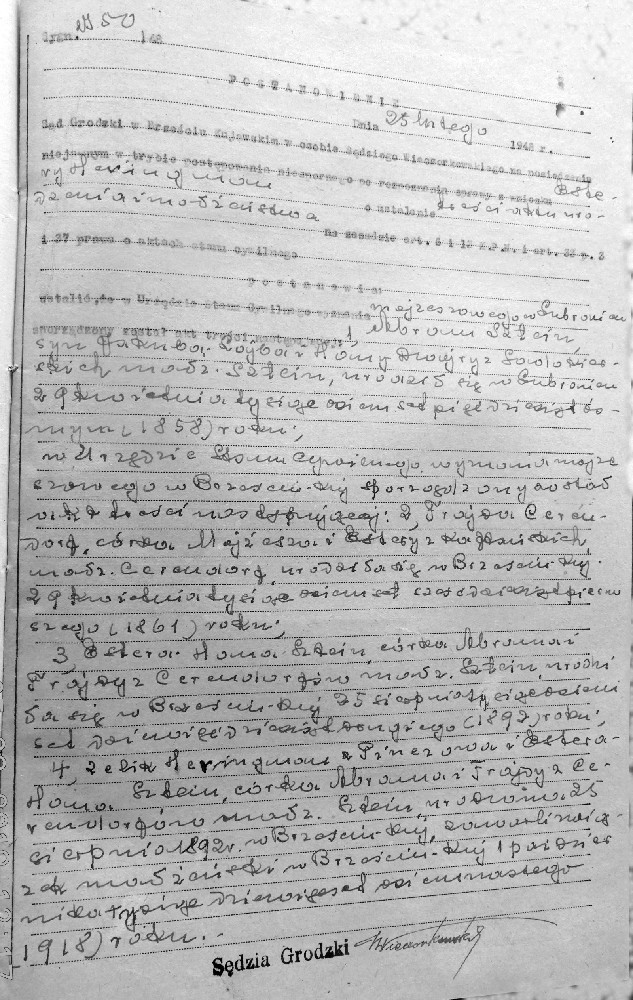 Sygn. 50 /48
POSTANOWIENIE
Dnia 25 lutego 1948 r.
Sąd Grodzki w Brześciu Kujawskim w osobie Sędziego Wieczorkowskiego na posiedzeniu
niejawnym w trybie postępowania niespornego po rozpoznaniu sprawy z wniosku Este-
ry Heringman o ustalenie treści aktu uro-
dzenia i małżeństwa na zasadzie art. i 13 K.P.N. i art. p. 2
i 27 prawa o aktach stanu cywilnego
Postanawia:
ustalić, że w Urzędzie Stanu Cywilnego wyznania mojżeszowego w Lubraniu
sporządzony został akt treści następującej: 1, Abram Sztein,
syn Jakuba Lojba i Hany Dwojry z
małż. Sztein, urodził się w Lubraniu
29 kwietnia tysiąc osiemset pięćdziesiąt ós-
mym (1858) roku;
w Urzędzie Stanu Cywilnego wyznania mojże
szowego w Brześciu-Kuj sporządzony został
akt treści następującej: 2, Frajda Ceren-
dorf, córka Mojżesza i Estery z
małż. Cerendorf, urodziła się w Brześciu-Kuj.
29 kwietnia tysiąc osiemset sześćdziesiąt pierw
szego (1861) roku;
3, Estera-Hana Sztein, córka Abrama i
Frajdy z Cerendorfów małż. Sztein, urodzi
ła się w Brześciu-Kuj 25 sierpnia tysiąc osiem
set dziewięćdziesiąt drugiego (1892) roku;
4, Zelik Heringman z i Estera-
Hana Sztein, córka Abrama i Frajdy z Ce-
rendorfów małż. Sztein, urodzona 25
sierpnia 1892 r. w Brześciu-Kuj, zawarli zwią-
zek małżeński w Brześciu-Kuj 1 paździer
nika tysiąc dziewięćset osiemnastego
1918) roku.
Sędzia Grodzki Wieczorkowski